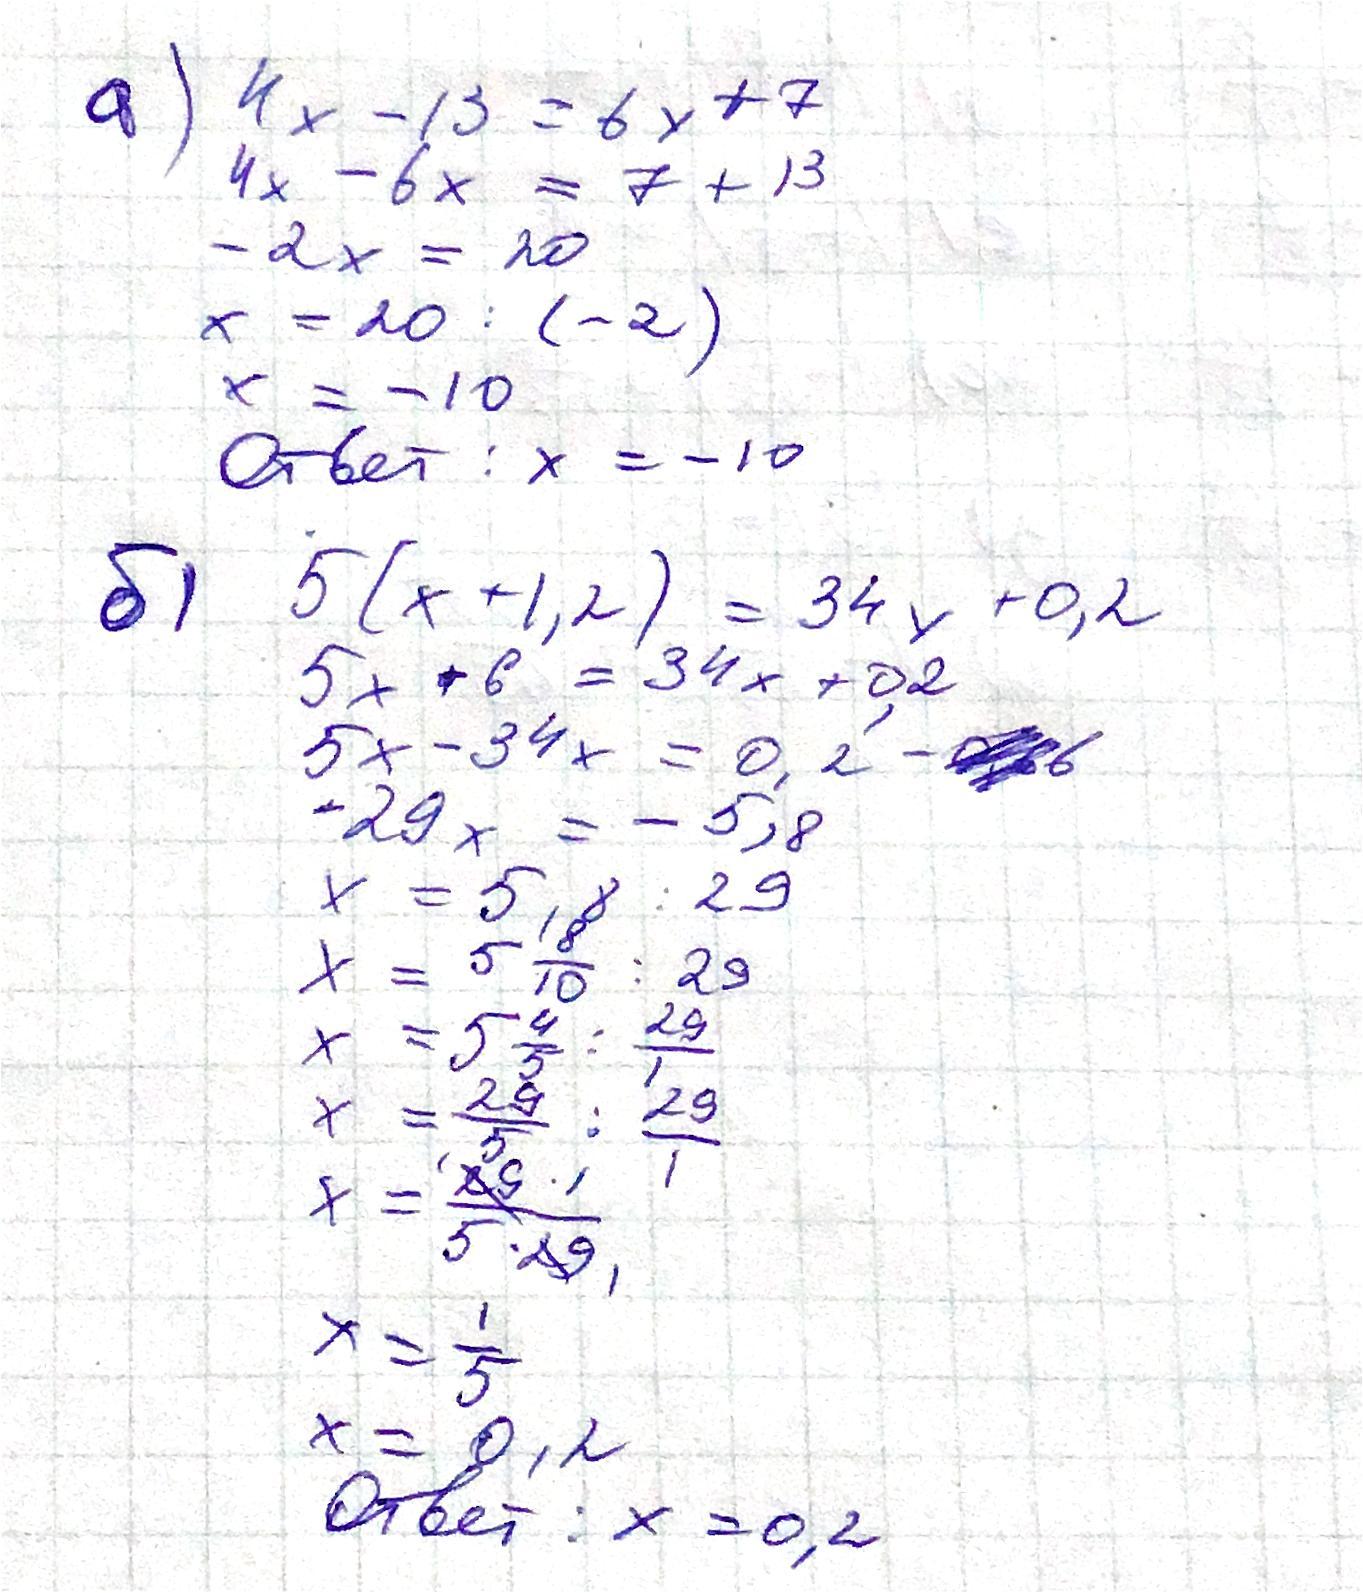 а) 4x - 13 = 6x + 7
4x - 6x = 7 + 13
-2x = 20
x = 20 : (-2)
x = -10
Ответ : x = -10
б) 5(x + 1,2) = 34x + 0,2
5x + 6 = 34x + 0,2
5x - 34x = 0,2 - 6
-29x = -5,8
x = 5,8 : 29
x = 5 8/10 : 29
x = 5 4/5 : 29/1
x = 29/5 : 29/1
x = 29 · 1 / 5 · 29
x = 1/5
x = 0,2
Ответ : x = 0,2